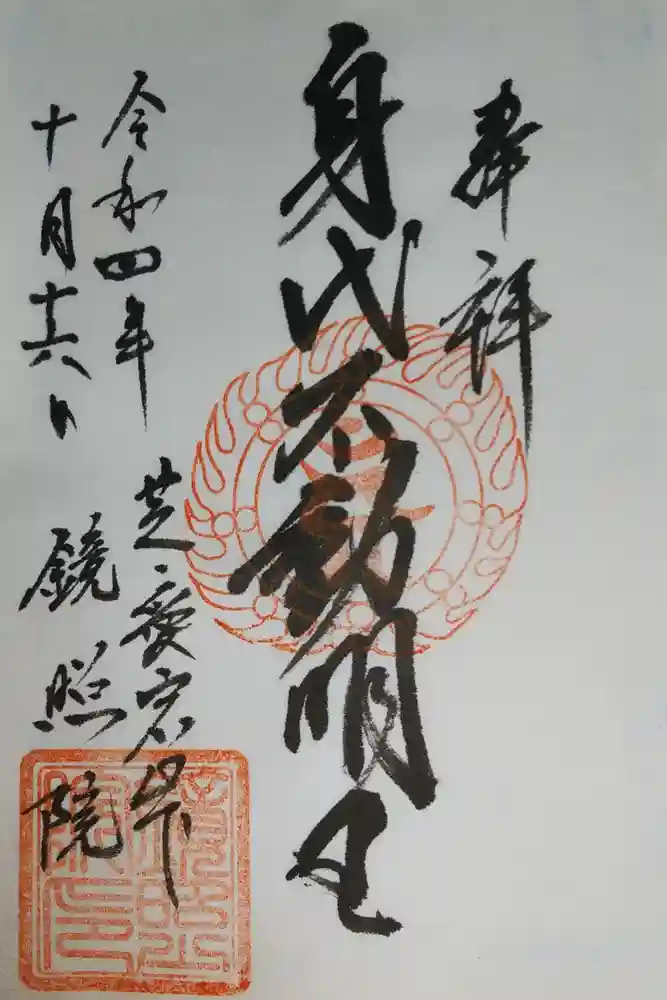 奉拝
身代不動明王
令和四年
十月十六日
芝・愛宕下
鏡照院